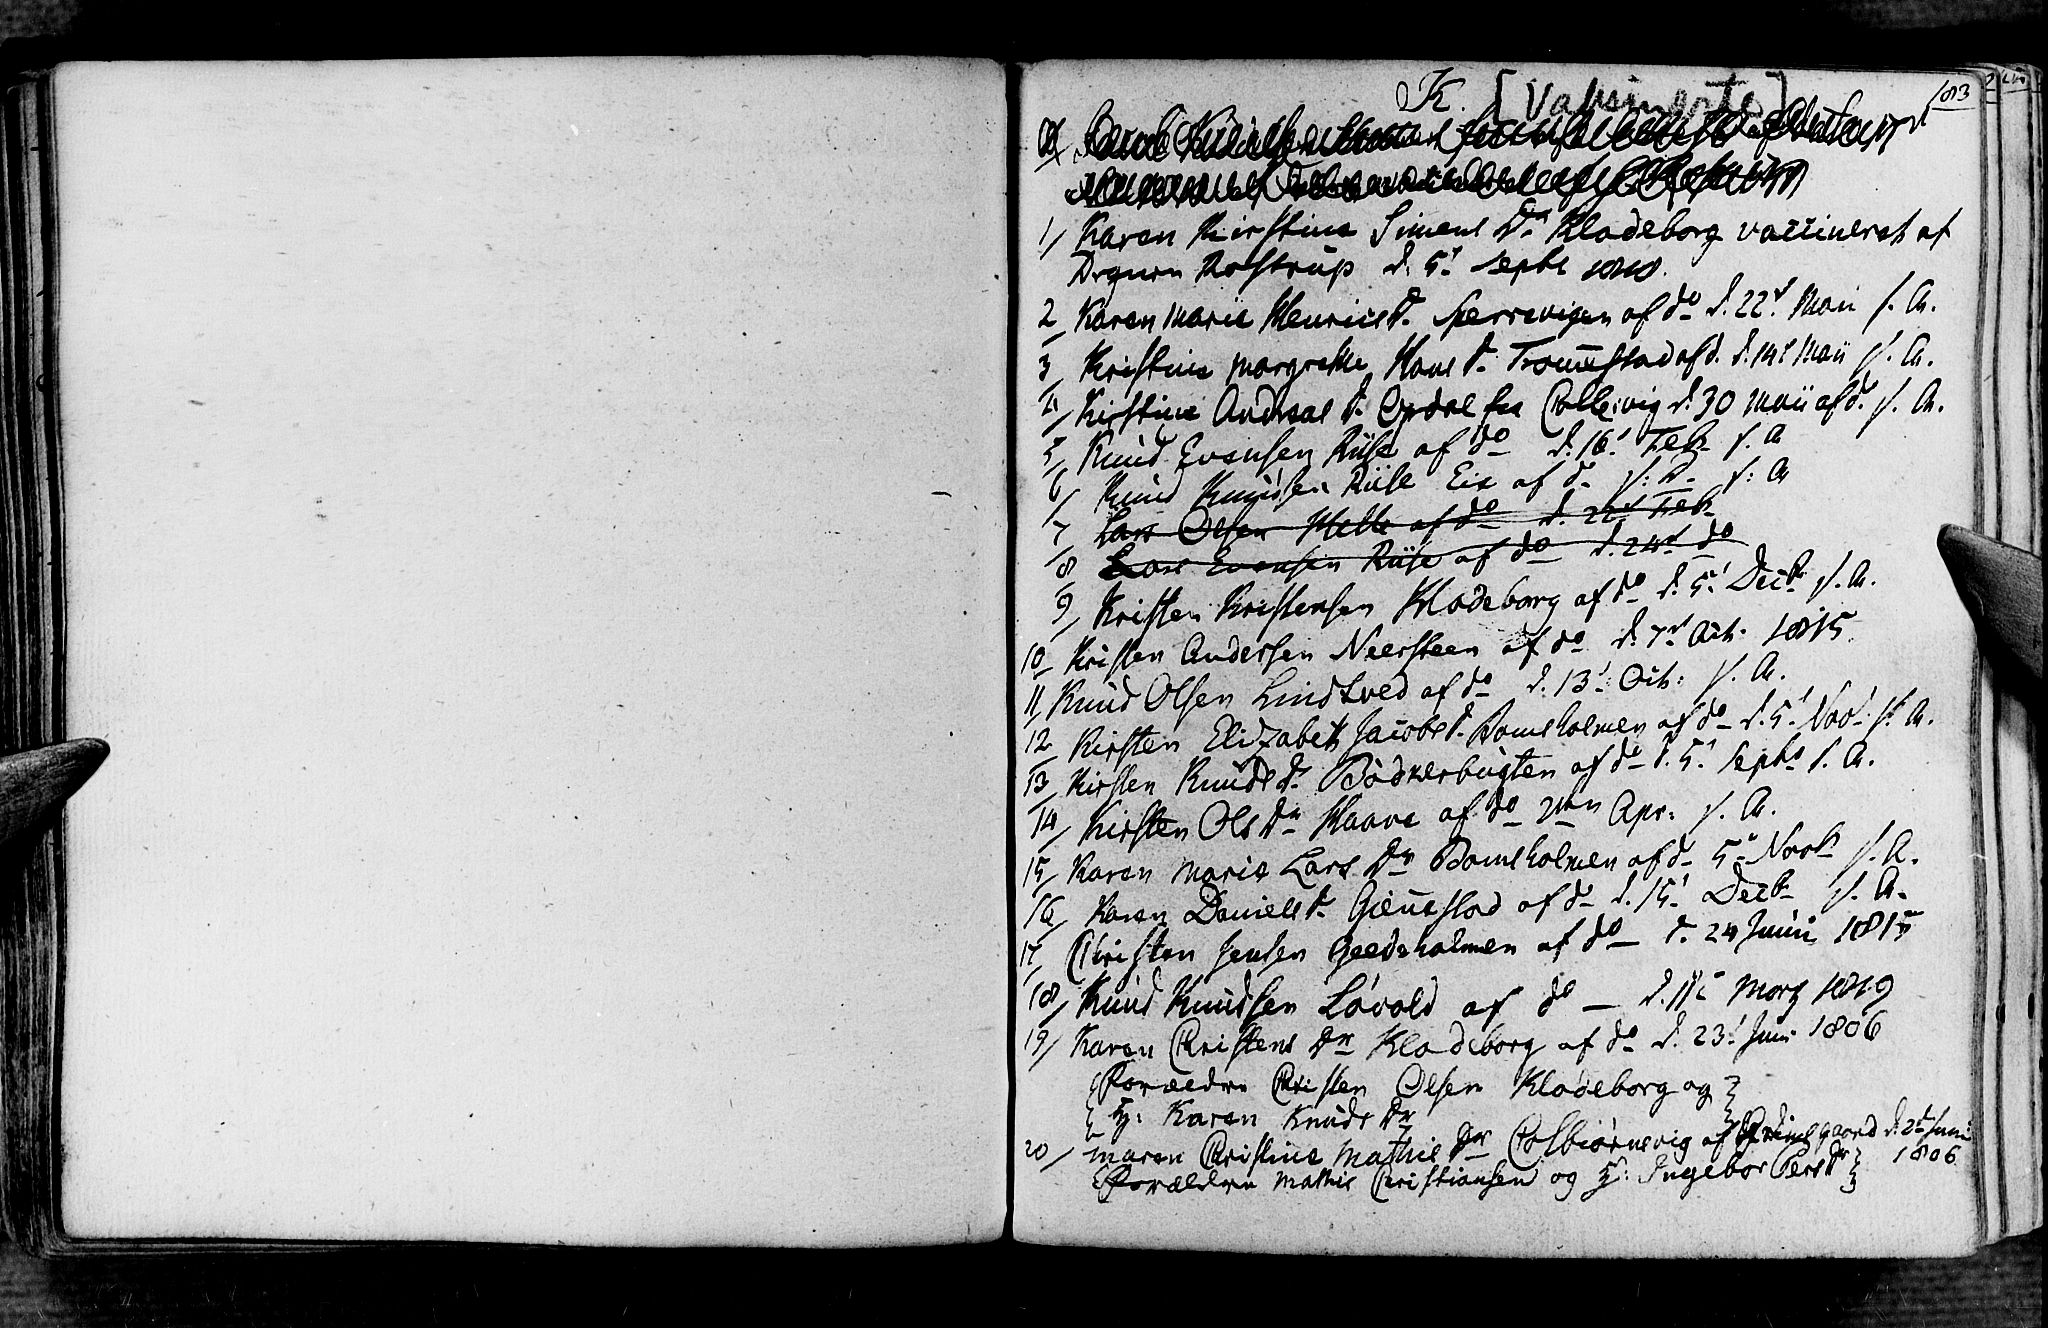 K. [Vaksinerte]
183
1/ Karen Kirstine Simens Dr Kladeborg vaccineret af
Degnen Rostrup d. 5t Septb 1810.
2/ Karen Marie Henricsd. Sperrevigen af do d. 22d Maii s. A.
3/ Kristine Margrethe Hans d. Tromestad af d. d. 14d Maii s. A.
4/ Kirstine Andreas d. Opdal fra Colb: vig d. 30 Maii af d. s. A.
5/ Knud Evensen Riise af do d. 16d Feb s. A
6/ Knud Knudsen Riise Eie af d. s: D. s: A
7/ Lars Olsen Helle af do d. 22d Feb
8/ Lars Evensen Riise af do d. 24d do
9/ Kristen Kristensen Kladeborg af do d. 5t Decb s. A.
10/ Kristen Andersen Neersteen af do d. 7d Oct. 1815.
11/ Knud Olsen Lindtved af do d. 13d: Oct: s. A.
12/ Kirsten Elizabeth Jacobs d. Bomsholmen af do d. 5t Novb s. A.
13/ Kirsten Knuds d. Bödkerbugten af do d. 5t Septb s. A.
14/ Kirsten Ols Dr Haave af do 2den Apr: s. A.
15/ Karen Marie Lars Dr Bomsholmen af d. 5t Novb s. A.
16/ Karen Daniels d. Gienestad af d. d. 15d Decb s. A.
17/ Christen Jensen Geedeholmen af do d. 24 Junii 1815
18/ Knud Knudsen Lövold af do d. 11t Marz 1819
19/ Karen Christens Dr Kladeborg af do d. 23d Juni 1806
Forældre Christen Olsen Kladeborg og
H: Karen Knuds Dr
20/ Maren Christine Mathis Dr Colbiørnsvig af Grimsgaard d. 2d Juni
Forældre Mathis Christiansen og H: Ingebor Pers Dr 1806